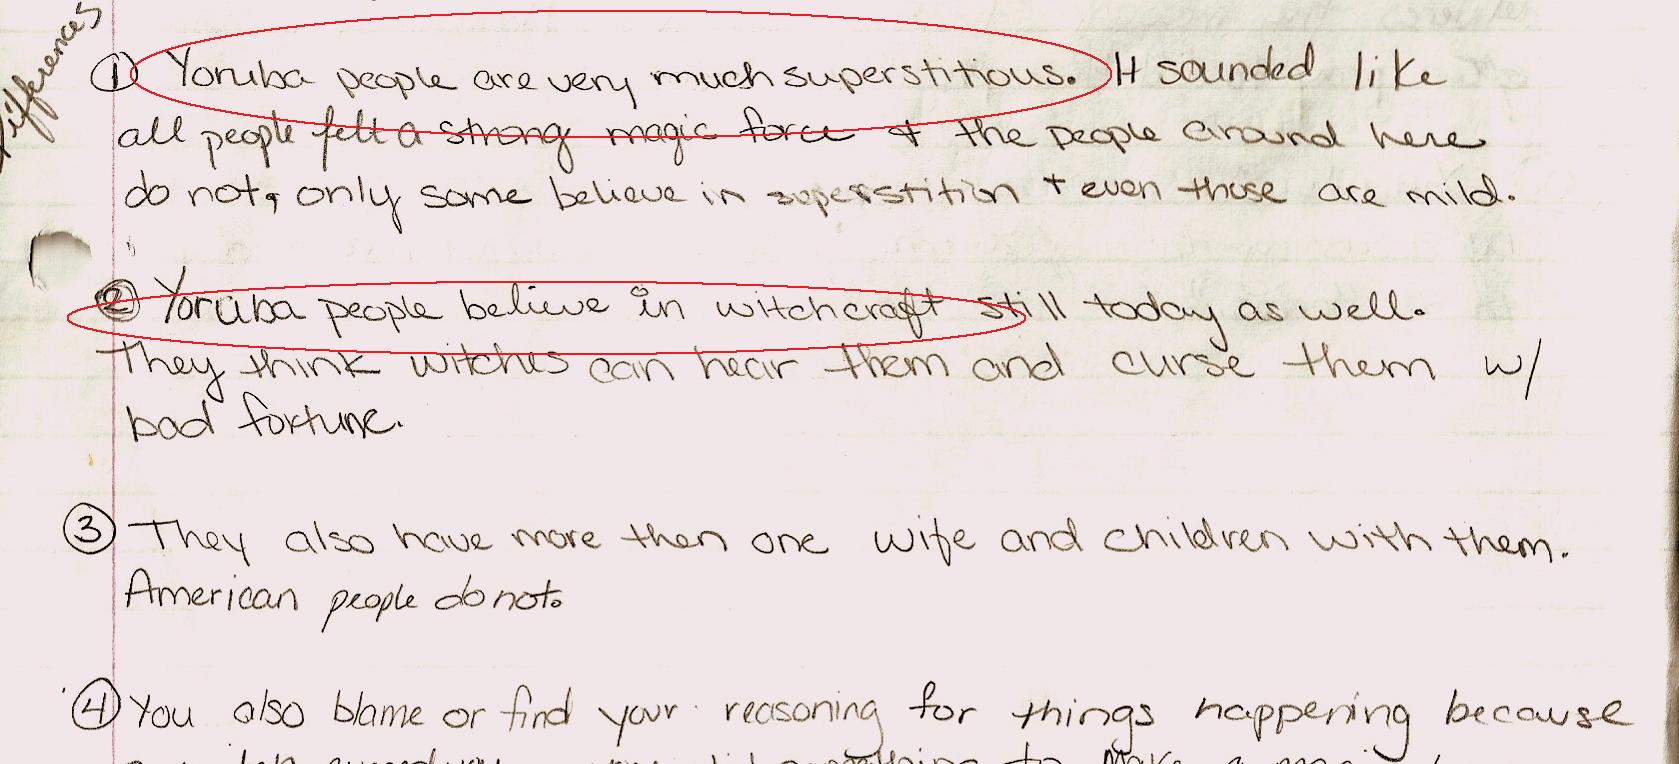 Differences
① Yoruba people are very much superstitious. It sounded like
all people felt a strong magic force + the people around here
do not, only some believe in superstition + even those are mild.
② Yoruba people believe in witchcraft still today as well.
They think witches can hear them and curse them w/
bad fortune.
③ They also have more then one wife and children with them.
American people do not.
④ You also blame or find your reasoning for things happening because
to make a